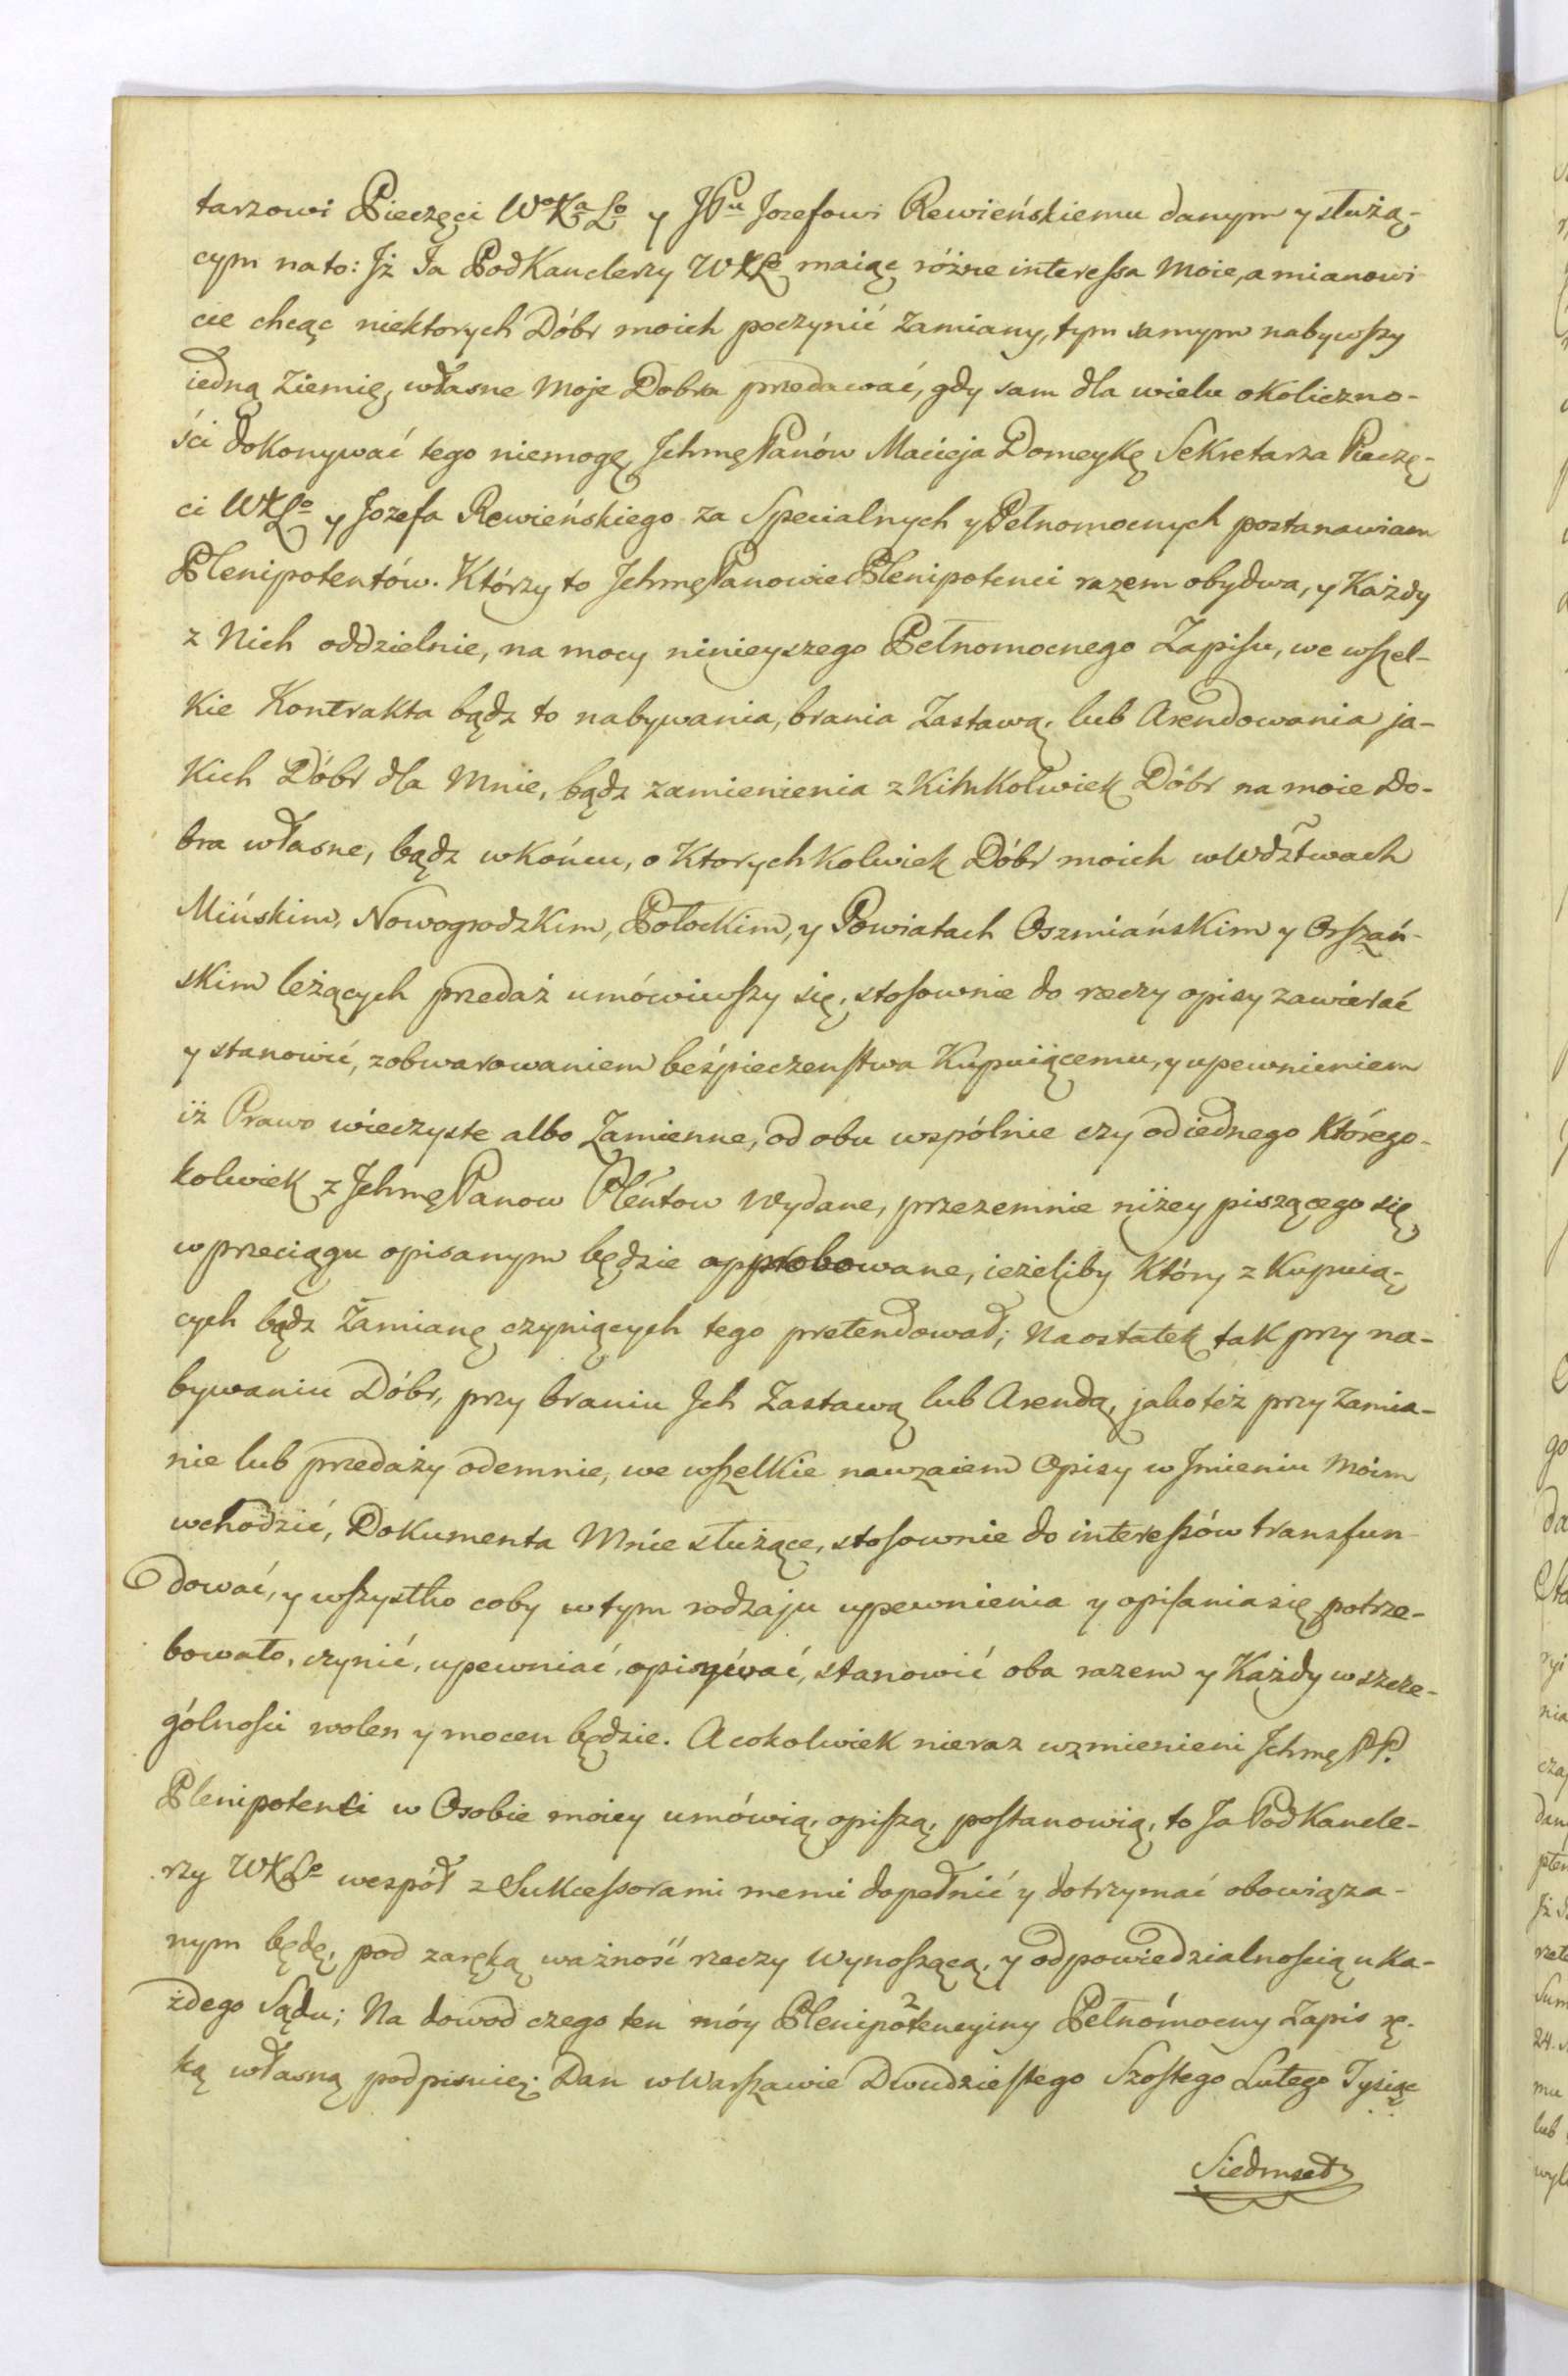 tarzowi Pieczęci Wo Ka Lo y JPu Jozefowi Rewieńskiemu danym y służą-
cym na to: Jż Ja PodKanclerzy WXLo maiąc różne interessa moie, a mianowi
cie chcąc niektorych Dóbr moich poczynić zamiany, tym samym nabywszy
iedną Ziemię, własne moje Dobra przedawać, gdy sam dla wielu okoliczno-
ści dokonywać tego niemogę, JchmęPanów Macieja Domeykę Sekretarza Pieczę-
ci WXLo y Jozefa Rewieńskiego za Specialnych y Pełnomocnych postanawiam
Plenipotentów. Którzy to JchmęPanowie Plenipotenci razem obydwa, y Każdy
z Nich oddzielnie, na mocy ninieyszego Pełnomocnego Zapisu, we wszel-
kie Kontrakta bądz to nabywania, brania Zastawą, lub Arendowania ja-
kich Dóbr dla Mnie, bądz zamienienia z Kimkolwiek Dóbr na moie Do-
bra własne, bądz wkońcu, o Ktorychkolwiek Dóbr moich w Wdztwach
Mińskim, Nowogrodzkim, Połockim, y Powiatach Oszmiańskim y Orszań-
skim leżących przedaż umówiwszy się, stosownie do rzeczy opisy zawierać
y stanowić, zobwarowaniem beśpieczenstwa Kupuiącemu, y upewnieniem
iż Prawo wieczyste albo Zamienne, od obu wspólnie czy od iednego którego-
kolwiek z JchmęPanow Plentow wydane, przezemnie niżey piszącego się,
w przeciągu opisanym będzie approbowane, ieżeliby Który z Kupuią-
cych bądz Zamianę czyniących tego pretendował; Naostatek tak przy na-
bywaniu Dóbr, przy braniu Jch Zastawą lub Arendą, jako też przy zamia-
nie lub przedaży odemnie, we wszelkie nawzaiem Opisy w Jmieniu moim
wchodzić, Dokumenta Mnie służące, stosownie do interessów transfun-
dować, y wszystko coby w tym rodzaju upewnienia y opisania się potrze-
bowało, czynić, upewniać, opisywać, stanowić oba razem y Każdy w szcze-
gólności wolen y mocen będzie. A cokolwiek nieraz wzmienieni Jchmę PP.
Plenipotenci w Osobie moiey umówią, opiszą, postanowią, to Ja PodKancle-
rzy WXLo wespół z Sukcessorami memi dopełnić y dotrzymać obowiąza-
nym będę, pod zaręką ważność rzeczy wynoszącą, y odpowiedzialnością u Ka-
żdego Sądu; Na dowod czego ten móy Plenipotencyiny Pełnomocny Zapis rę-
ką własną podpisuię. Dan w Warszawie Dwudziestego Szostego Lutego Tysiąc
Siedmset